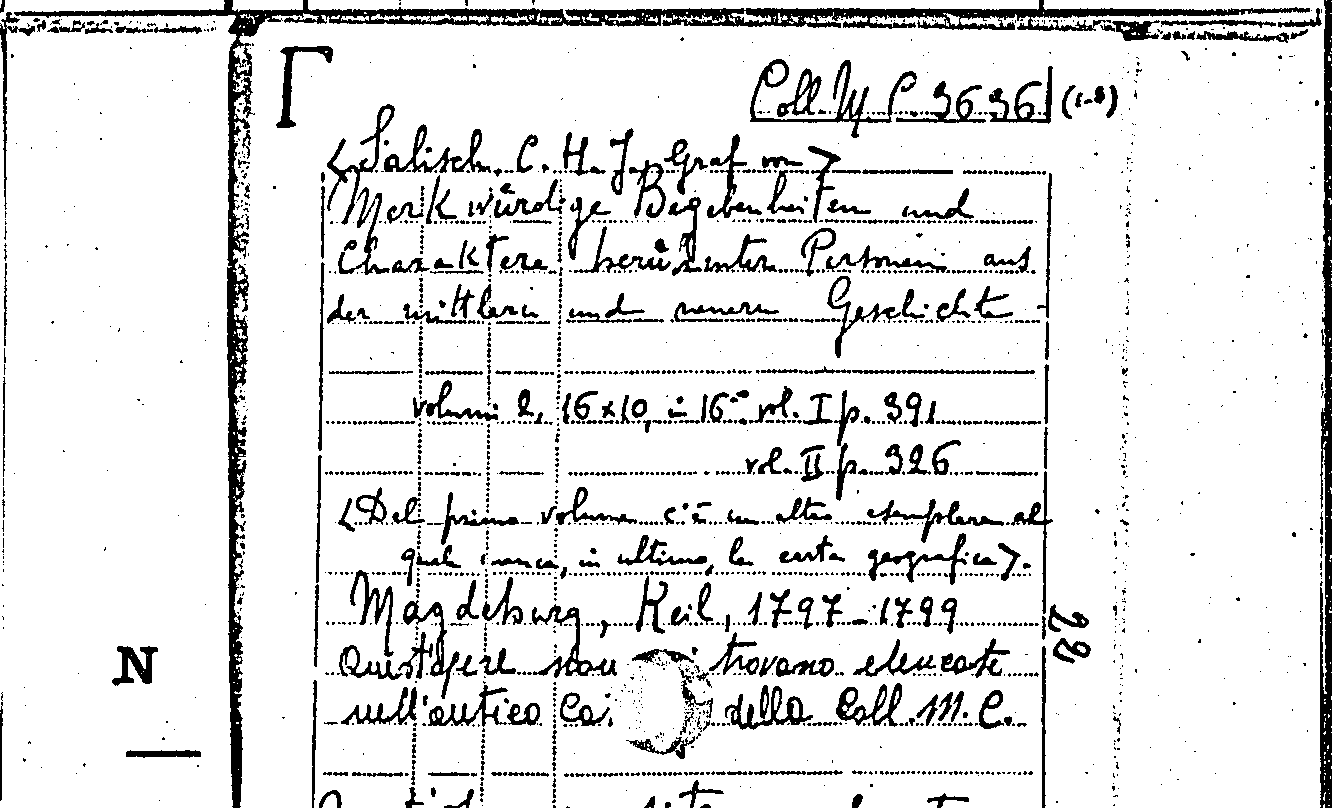 Γ
Coll. M C. 3636 (1-2)
<Salisch. C. H. J., Graf von>
Merkwürdige Begebenheiten und
Charaktere berühmter Personen aus
der mittlern und neuern Geschichte -
volumi 2, 16x10, in 16° vol. I p. 391
vol. II p. 326
<Del primo volume c'è un altro esemplare al
quale manca, in ultimo, la carta geografica>.
Magdeburg, Keil, 1797-1799
28
Quest'opere non trovano elencate
nell'antico della Coll. M. C.
N